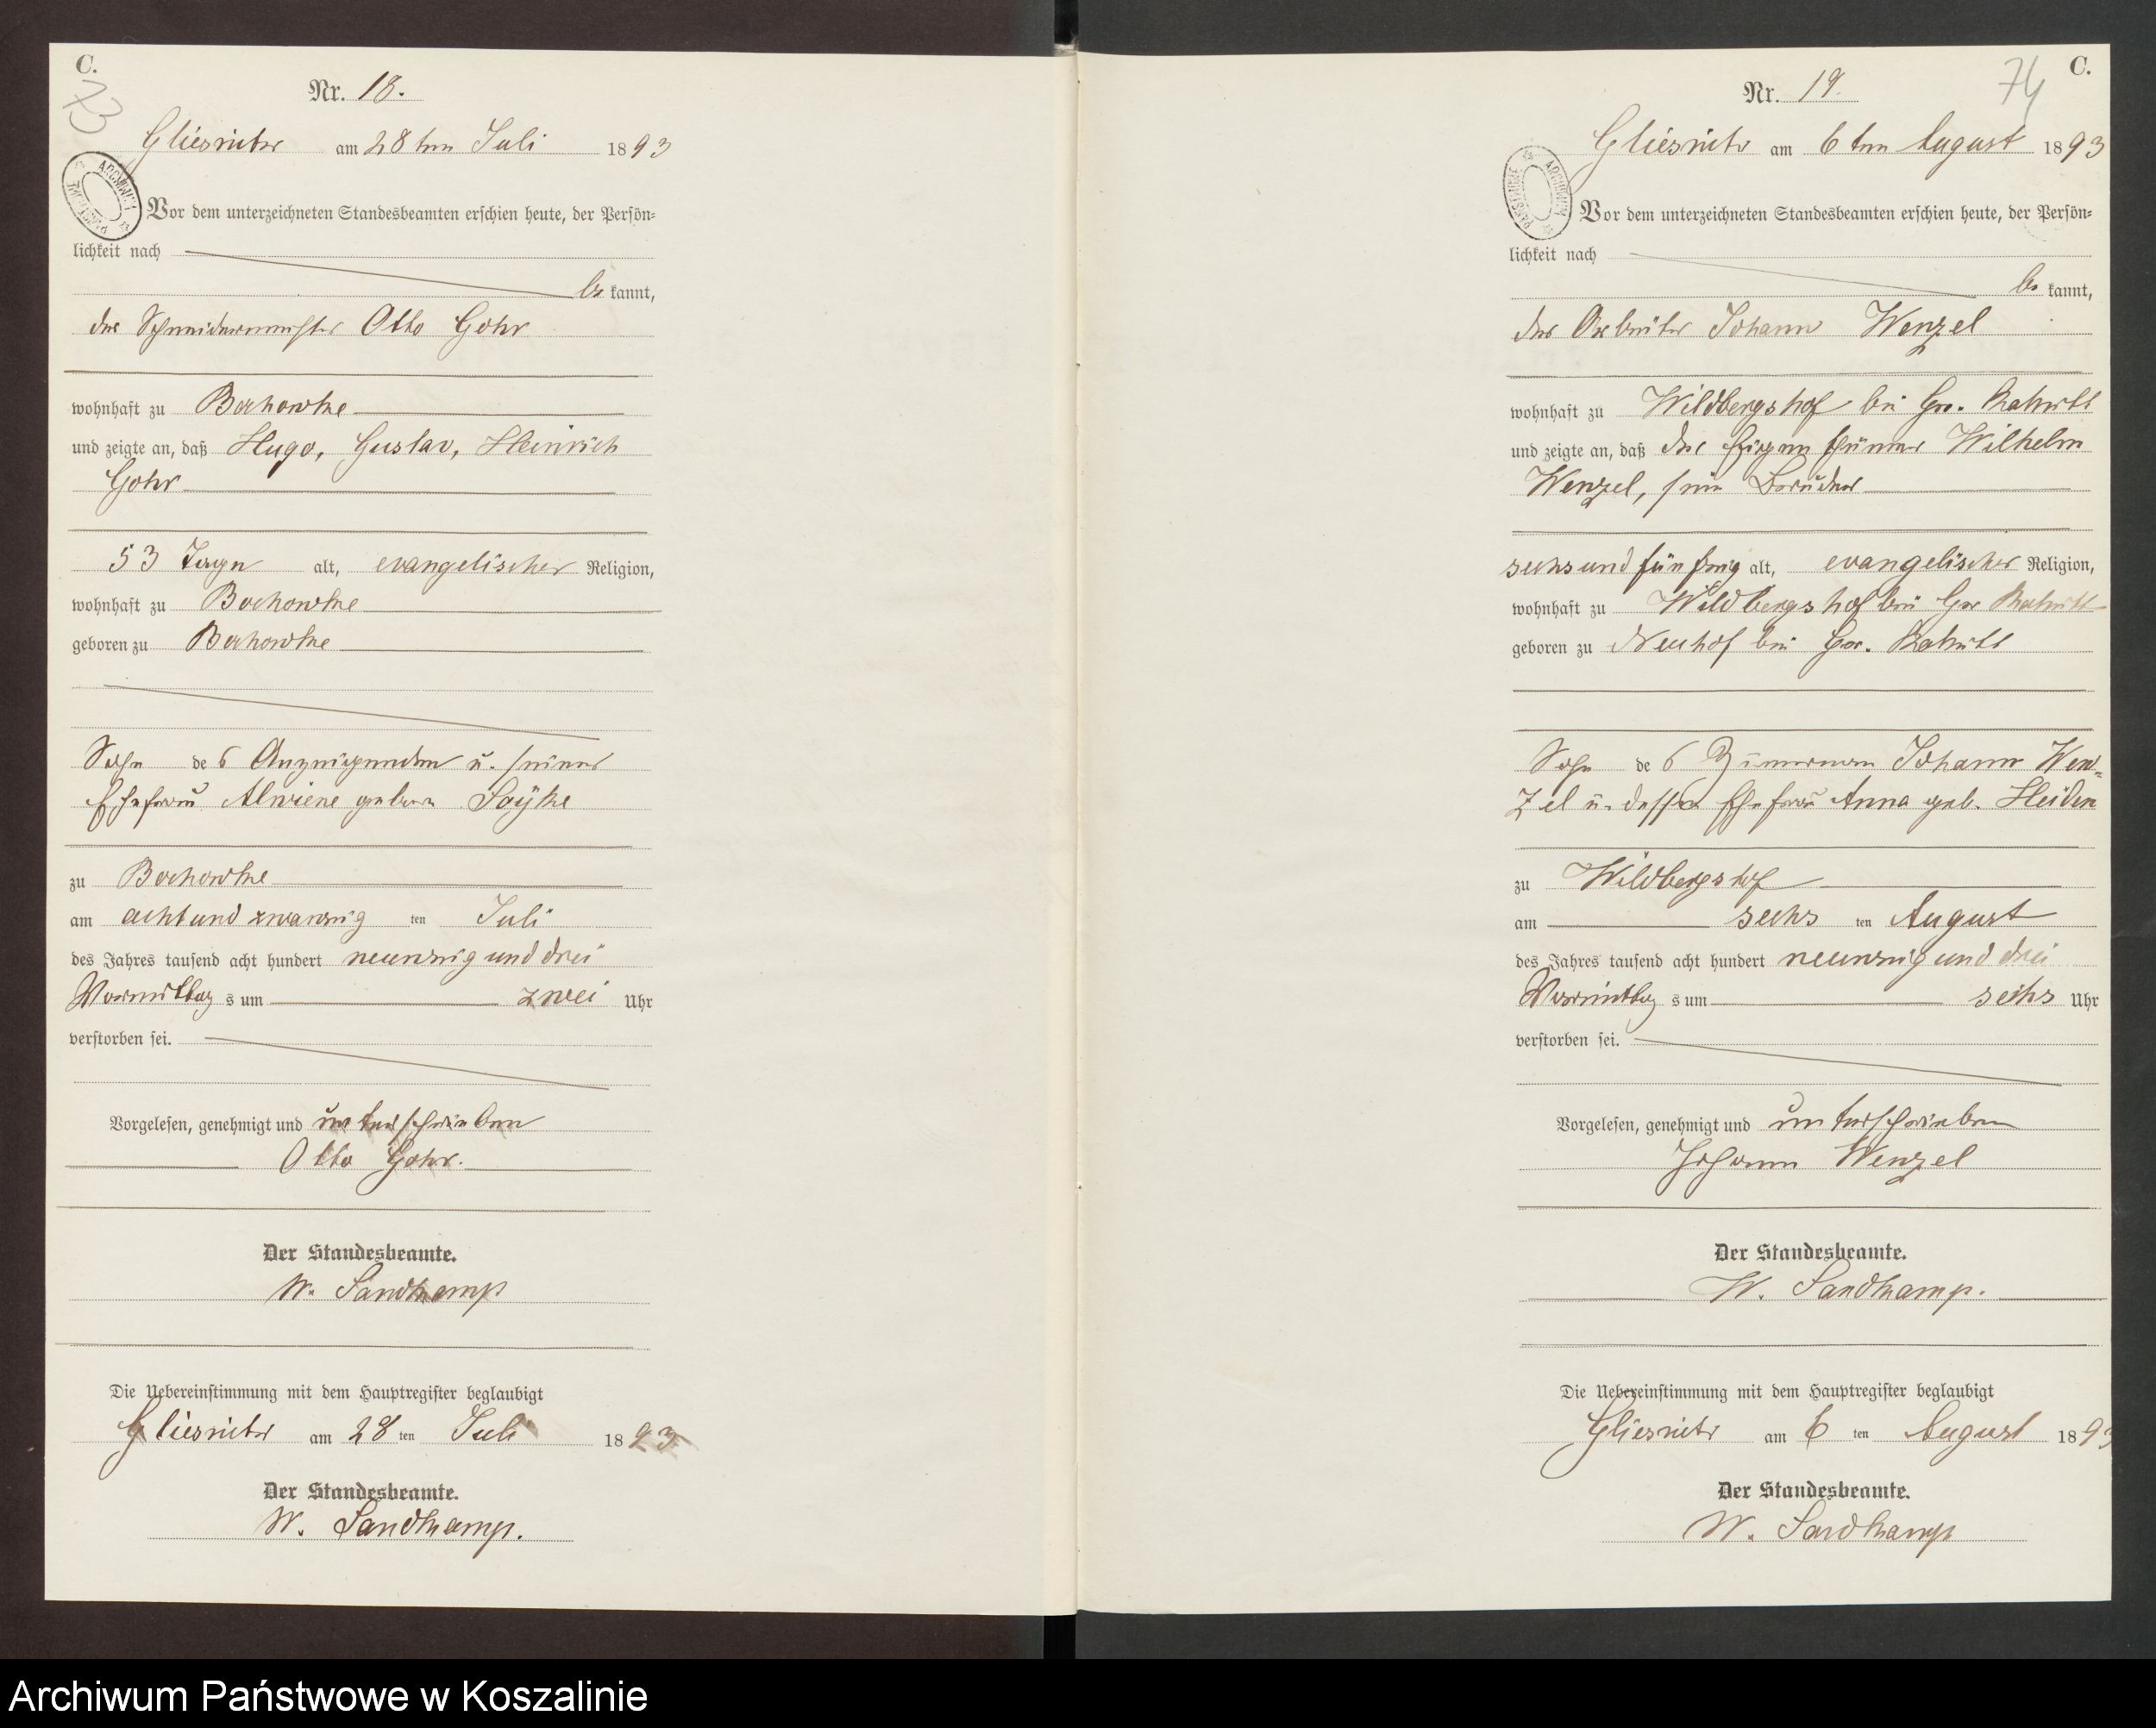 C.
73
Nr. 18.
Gliesnitz am 28ten Juli 1893
ARCHIWUM PAŃSTWOWE
Vor dem unterzeichneten Standesbeamten erschien heute, der Persön=
lichkeit nach
be kannt,
der Schneidermeister Otto Gohr
wohnhaft zu Bochowke
und zeigte an, daß Hugo, Gustav, Heinrich
Gohr
53 Tage alt, evangelischer Religion,
wohnhaft zu Bochowke
geboren zu Bochowke
Sohn des Anzeigenden u. seiner
Ehefrau Alwiene geboren
zu Bochowke
am achtundzwanzig ten Juli
des Jahres tausend acht hundert neunzig und drei
Vormittag s um zwei Uhr
verstorben sei.
Vorgelesen, genehmigt und unterschrieben
Otto Gohr.
Der Standesbeamte.
W. Sandkamp
Die Uebereinstimmung mit dem Hauptregister beglaubigt
Gliesnitz am 28 ten Juli 1893
Der Standesbeamte.
W. Sandkamp.
C.
74
Nr. 19.
Gliesnitz am 6ten August 1893
ARCHIWUM PAŃSTWOWE
Vor dem unterzeichneten Standesbeamten erschien heute, der Persön=
lichkeit nach
be kannt,
der Arbeiter Johann Wenzel
wohnhaft zu Wildbergshof bei Gr. Rakitt
und zeigte an, daß der Eigenthümer Wilhelm
Wenzel, sein Bruder
sechsundfünfzig alt, evangelischer Religion,
wohnhaft zu Wildbergshof bei Gr Rakitt
geboren zu Neuhof bei Gr. Rakitt
Sohn des Johann Wen=
zel u. dessen Ehefrau Anna geb. Heiden
zu Wildbergshof
am sechs ten August
des Jahres tausend acht hundert neunzig und drei
Vormittag s um sechs Uhr
verstorben sei.
Vorgelesen, genehmigt und unterschrieben
Johann Wenzel
Der Standesbeamte.
W. Sandkamp.
Die Uebereinstimmung mit dem Hauptregister beglaubigt
Gliesnitz am 6 ten August 1893
Der Standesbeamte.
W. Sandkamp
Archiwum Państwowe w Koszalinie